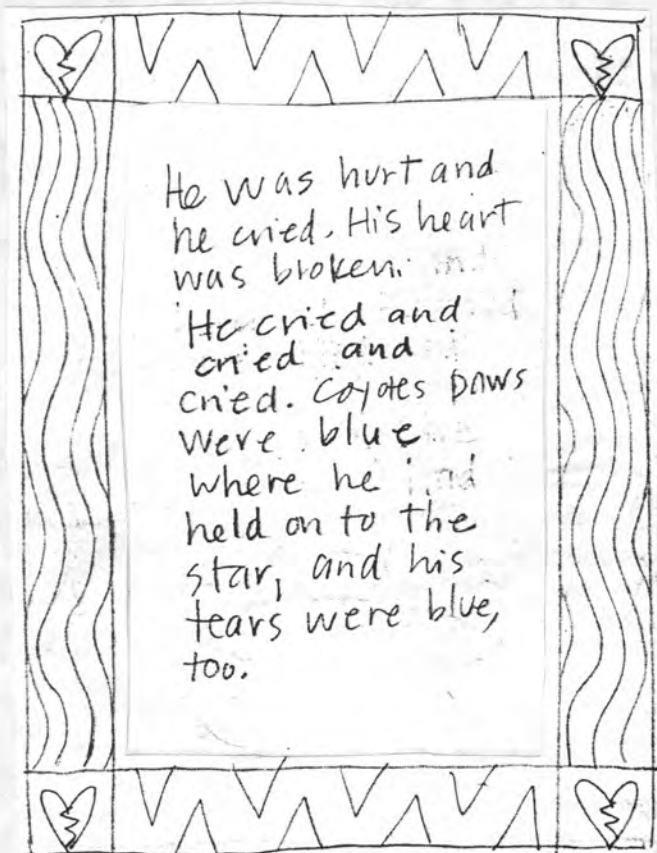 He was hurt and
he cried. His heart
was broken.
He cried and
cried and
cried. Coyotes paws
were blue
where he
held on to the
star, and his
tears were blue,
too.